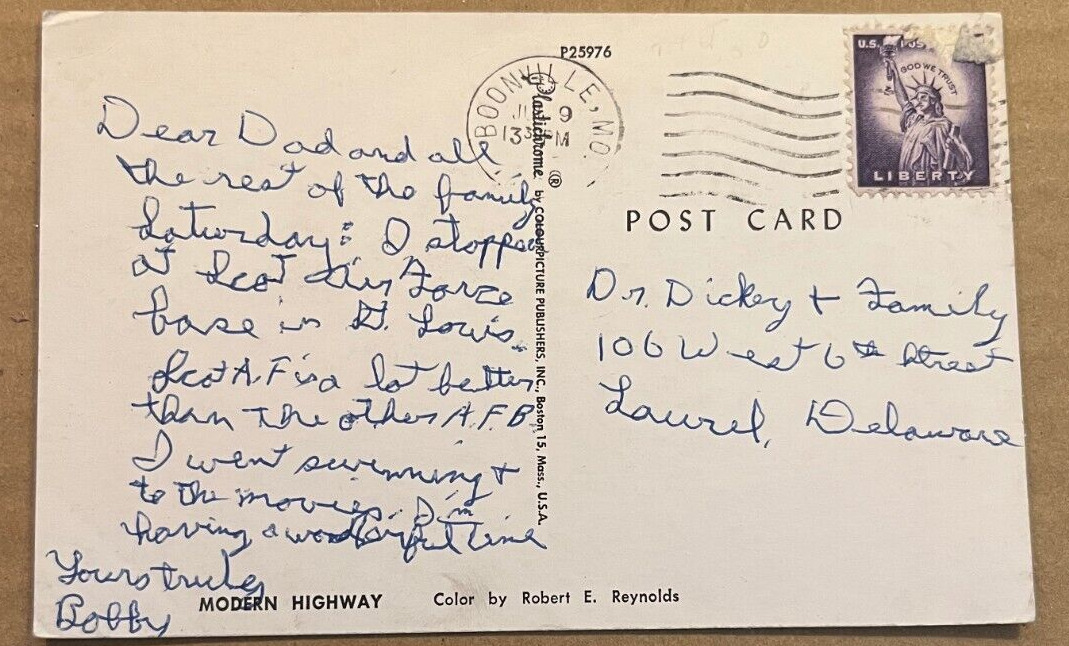 Dear Dad and all
the rest of the family
Saturday: I stopped
at Scot Air Forze
base in St. Louis.
Scot A.F is a lot better
than the other A.F.B.
I went swimming +
to the movies. I'm
having a wonderful time
Yours truley
Bobby
MODERN HIGHWAY
Color by Robert E. Reynolds
P25976
Plastichrome ® by COLOURPICTURE PUBLISHERS, INC., Boston 15, Mass., U.S.A.
BOONVILLE, MO.
9
POST CARD
U.S.
GOD WE TRUST
LIBERTY
Dr. Dickey + Family
106 West 6th Street
Laurel, Delaware